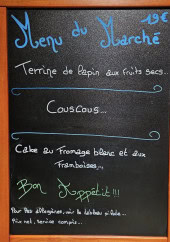 19€
Menu du Marché
Terrine de lapin aux fruits secs...
Couscous...
Cake au fromage blanc et aux
Framboises...
Bon Appétit!!!
Pour les allergènes, voir le tableau
Prix net, service compris...